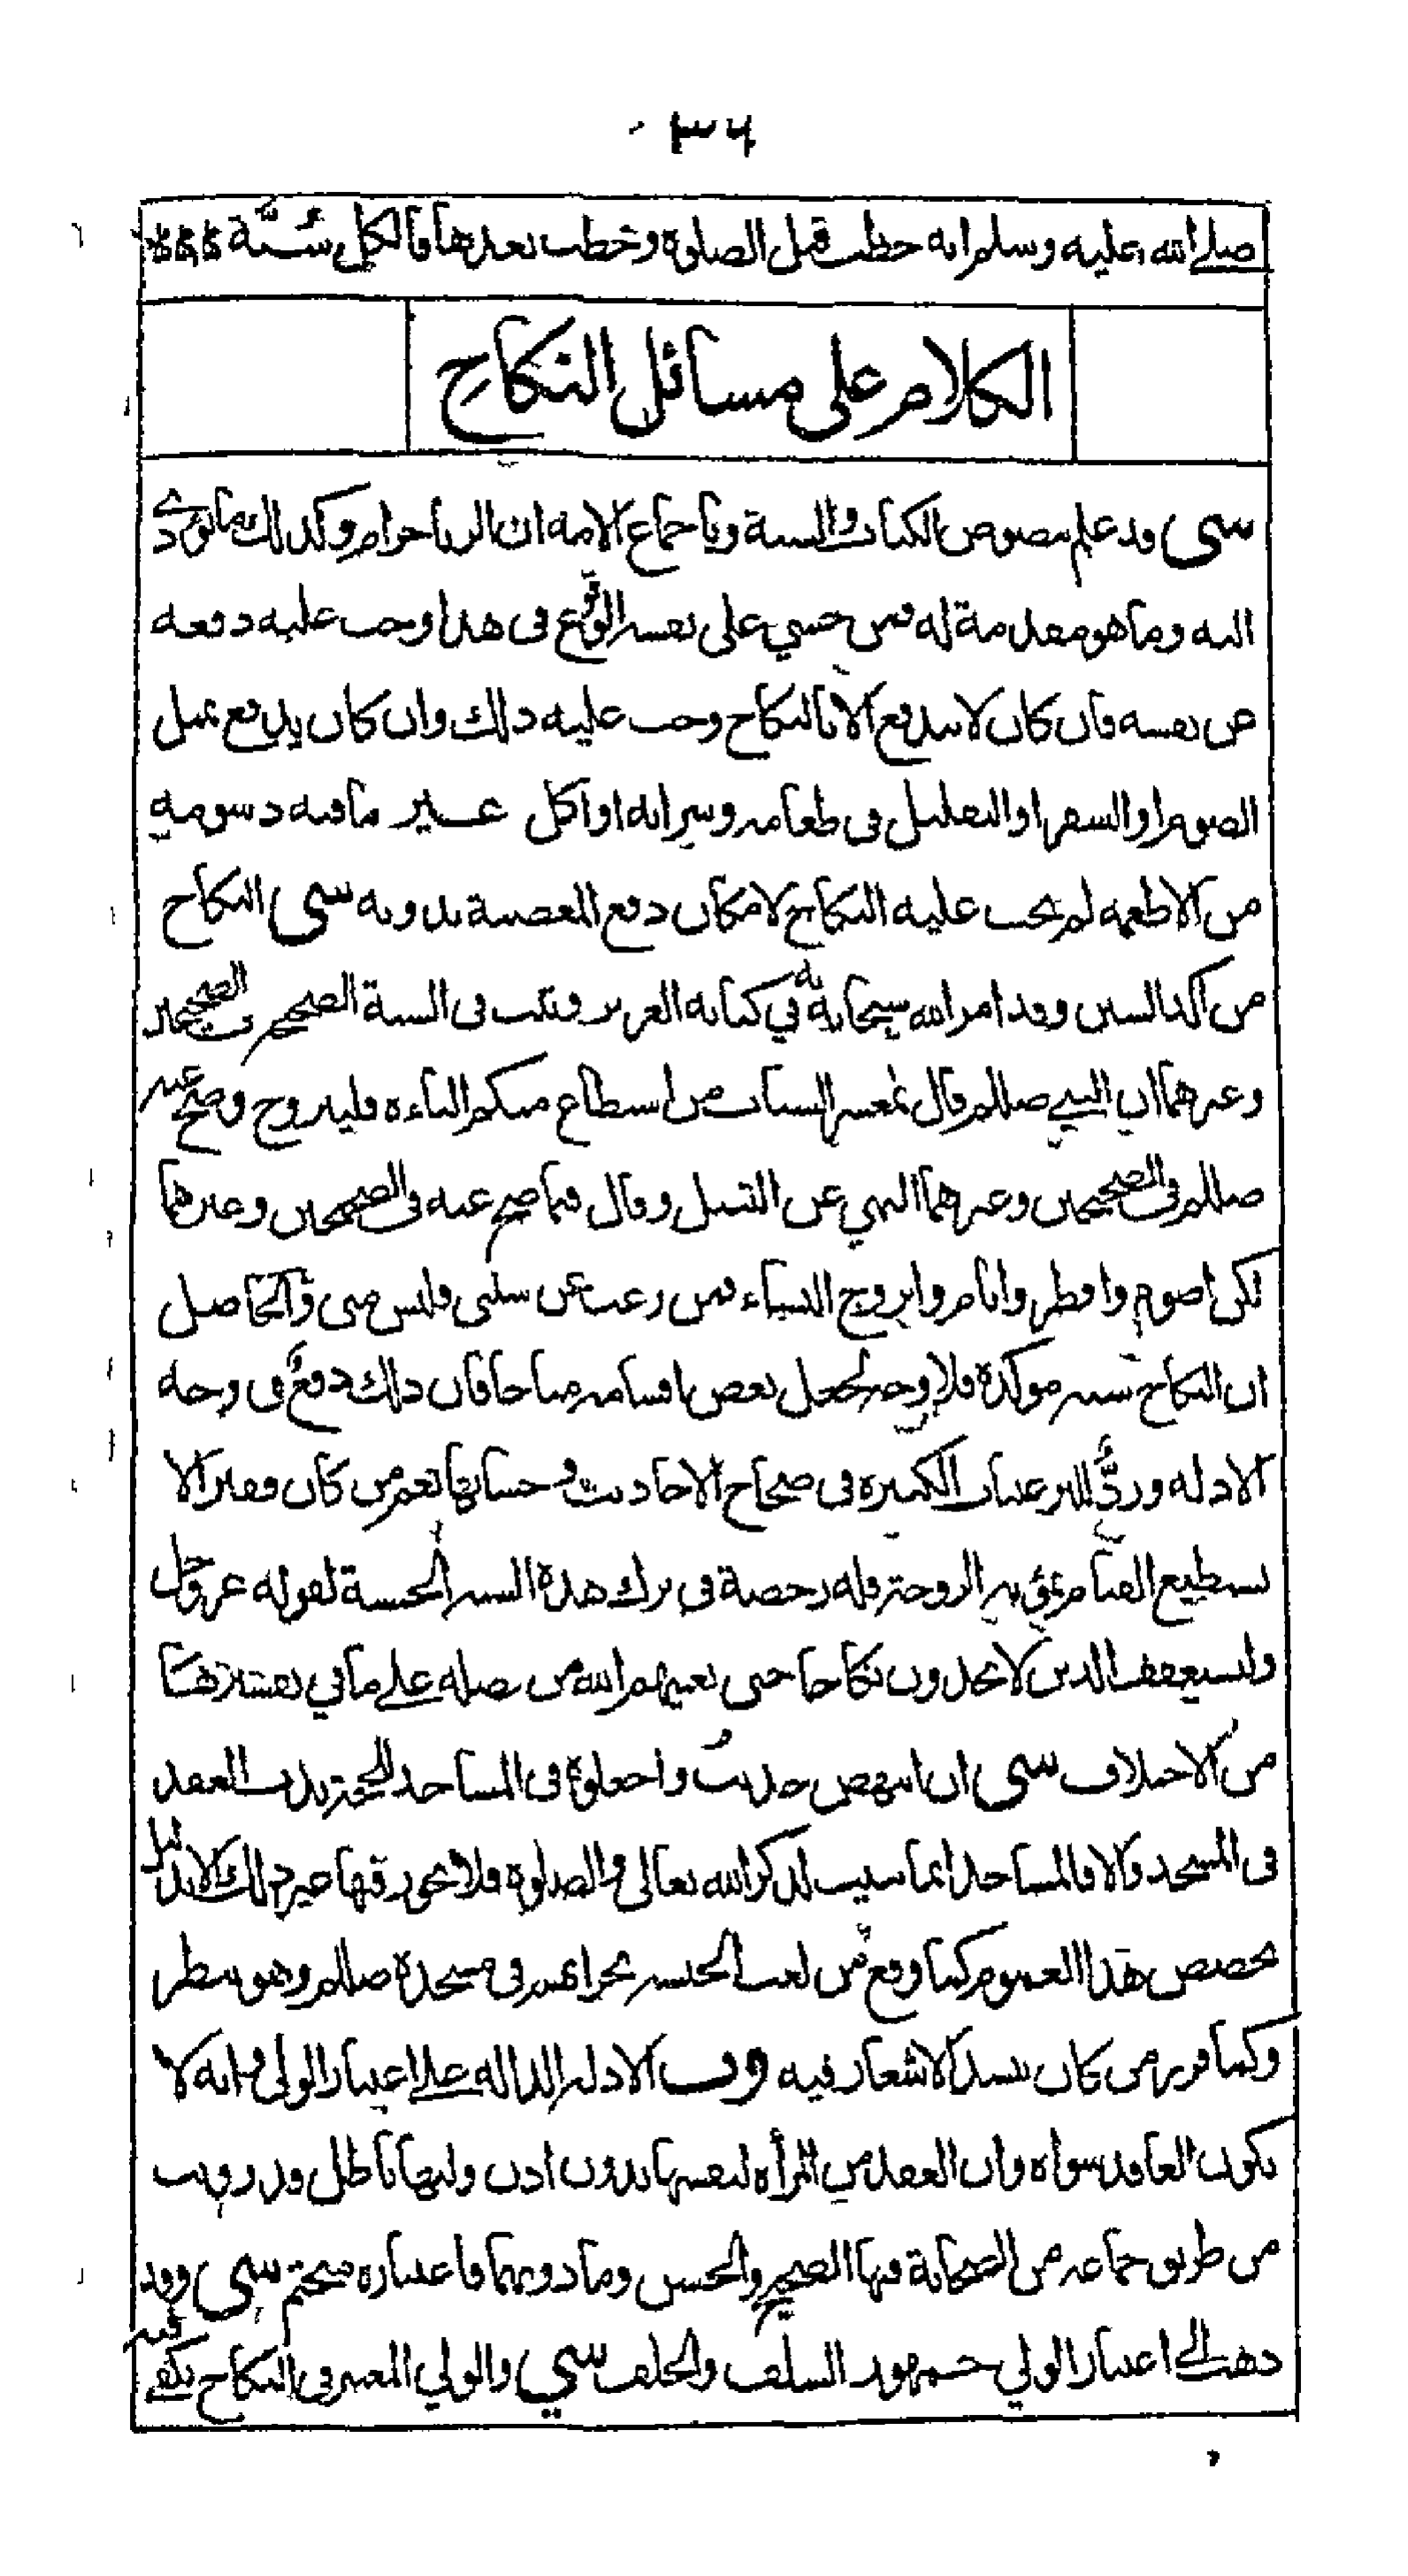 ٣٦
صلى الله عليه وسلم انه خطب قبل الصلوة وخطب بعدها فالكل سُنَّة
الكلام على مسائل النكاح
سى وقد علم بنصوص الكتاب والسنة وباجماع الامه ان الزنا حرام وكذلك ما يؤدى
اليه وما هو مقدمة له فمن خشي على نفسه الوقوع في هذا وجب عليه دفعه
عن نفسه فان كان لا يندفع الا بالنكاح وجب عليه ذلك وان كان يندفع بمثل
الصوم او السفر او التقليل في طعامه وشرابه او اكل غير ما فيه دسومه
من الاطعمه لم يجب عليه النكاح لامكان دفع المعصية بدونه سى النكاح
من آكد السنن وقد امر الله سبحانه به في كتابه العزيز وثبت في السنة الصحيحة في الصحيحين
وغيرهما ان النبي صللم قال يا معشر الشباب من استطاع منكم الباءه فليتزوج وصح عنه
صللم في الصحيحين وغيرهما النهي عن التبتل وقال فيما صح عنه في الصحيحين وغيرهما
لكنى اصوم وافطر وانام واتزوج النساء فمن رغب عن سنتى فليس منى والحاصل
ان النكاح سنه موكدة فلا وجه لجعل بعض اقسامه مباحا فان ذلك دفعٌ في وجه
الادله وردٌّ للترغيبات الكثيره في صحاح الاحاديث وحسانها نعم من كان فقيرا لا
يستطيع القيام بمؤنه الزوجة فله رخصة في ترك هذه السنه الحسنة لقوله عز وجل
وليستعفف الذين لا يجدون نكاحا حتى يغنيهم الله من فضله على ما في تفسيرها
من الاختلاف سى ان انتهض حديث واجعلوه في المساجد للحجة بندب العقد
في المسجد والا فالمساجد انما بنيت لذكر الله تعالى والصلوة فلا يجوز فيها غير ذلك الا بدليل
يخصص هذا العموم كما وقع من لعب الحبشه بحرابهم في مسجده صللم وهو ينظر
وكما قرر من كان ينشد الاشعار فيه وف الادله الداله على اعتبار الولي وانه لا
يكون العاقد سواه وان العقد من المرأه لنفسها بدون اذن وليها باطل قد رويت
من طريق جماعه من الصحابة فيها الصحيح والحسن وما دونهما فاعتباره متحتم سى وقد
ذهب الى اعتبار الولي جمهور السلف والخلف سي والولي المعتبر في النكاح يكفي فيه